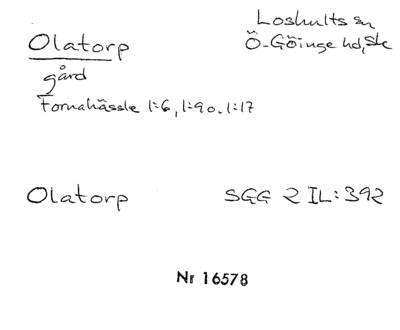 Loshults sn
Olatorp
Ö-Göinge hd, Sk
gård
Fornahässle 1:6, 1:90. 1:17
Olatorp SGG 2 IL:392
Nr 16578